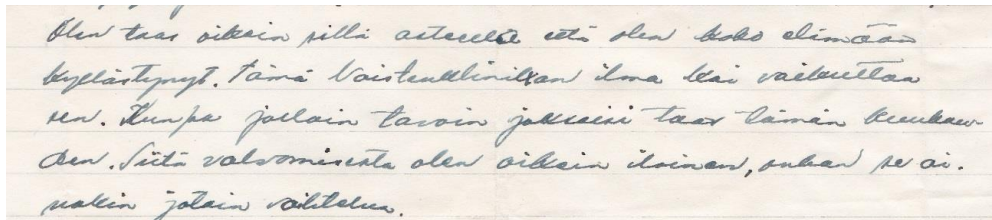 Olen taas oikein sillä asteella että olen koko elämään
kyllästynyt. Tämä Naistenklinikan ilma kai vaikuttaa
sen. Kunpa jollain tavoin jaksaisi taas tämän kuukau-
den. Siitä valvomisesta olen oikein iloinen, onhan se ai-
nakin jotain vaihtelua.